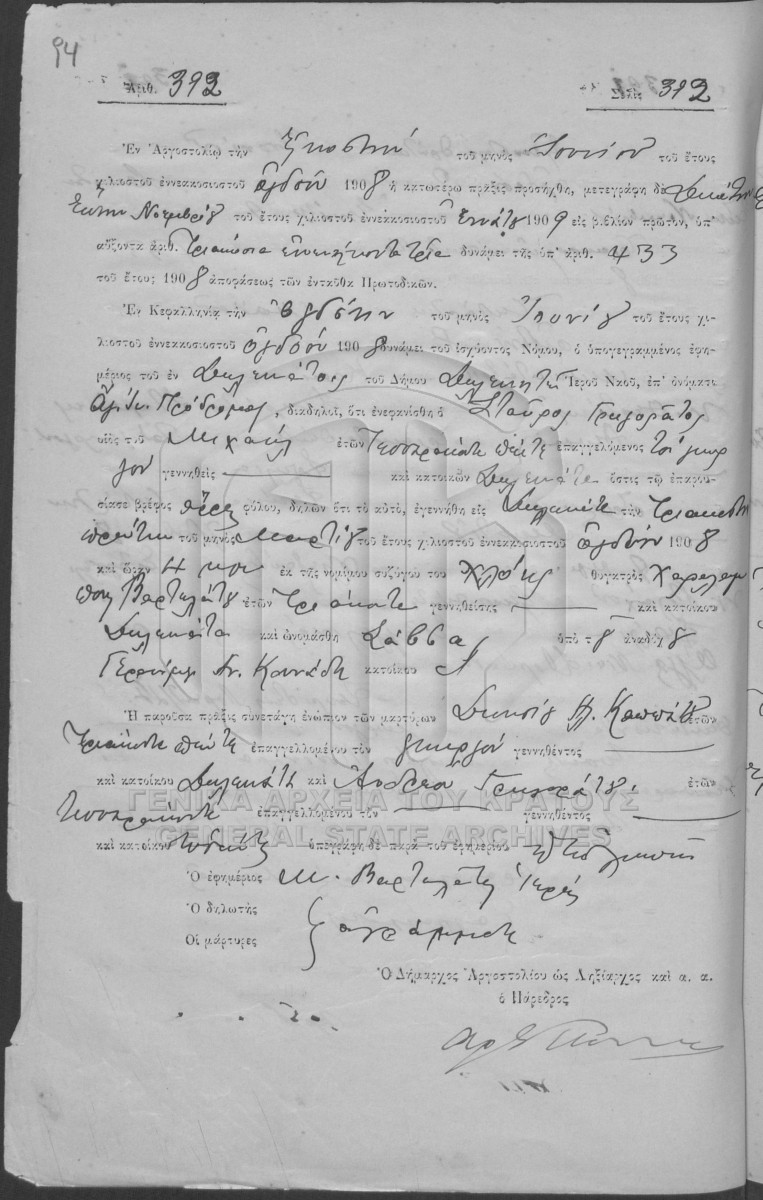 94
Ἀριθ. 392
Σελὶς 392
Ἐν Ἀργοστολίῳ τὴν εἰκοστὴν τοῦ μηνὸς Ἰουνίου τοῦ ἔτους
χιλιοστοῦ ἐννεακοσιοστοῦ ὀγδόου 1908 ἡ κατωτέρω πρᾶξις προσήχθη, μετεγράφη δὲ δεκάτην
ἕκτην Νοεμβρίου τοῦ ἔτους χιλιοστοῦ ἐννεακοσιοστοῦ ἐννάτου 1909 εἰς βιβλίον πρῶτον, ὑπ'
αὔξοντα ἀριθ. Τριακόσια ἐνενήκοντα τρία δυνάμει τῆς ὑπ' ἀριθ. 433
τοῦ ἔτους 1908 ἀποφάσεως τῶν ἐνταῦθα Πρωτοδικῶν.
Ἐν Κεφαλληνίᾳ τὴν ὀγδόην τοῦ μηνὸς Ἰουνίου τοῦ ἔτους χι-
λιοστοῦ ἐννεακοσιοστοῦ ὀγδόου 1908 δυνάμει τοῦ ἰσχύοντος Νόμου, ὁ ὑπογεγραμμένος ἐφη-
μέριος τοῦ ἐν Διλινάτοις τοῦ Δήμου Ἱεροῦ Ναοῦ, ἐπ' ὀνόματι
Ἁγίου Ἰω. Προδρόμου, διαδηλοῖ, ὅτι ἐνεφανίσθη ὁ Σταῦρος Γρηγορᾶτος
υἱὸς τοῦ Μιχαὴλ ἐτῶν Τεσσαράκοντα πέντε ἐπαγγελόμενος τὸν γεωρ
γὸν γεννηθεὶς καὶ κατοικῶν Διλινάτα ὅστις τῷ ἐπαρου-
σίασε βρέφος φύλου, δηλῶν ὅτι τὸ αὐτό, ἐγεννήθη εἰς Διλινάτα τὴν Τριακοστὴν
πρώτην τοῦ μηνὸς Μαρτίου τοῦ ἔτους χιλιοστοῦ ἐννεακοσιοστοῦ ὀγδόου 1908
καὶ ὥραν 4 ἐκ τῆς νομίμου συζύγου του Χλόης θυγατρὸς Χαραλάμ
πους Βαρταλάτου ἐτῶν Τριάκοντα γεννηθείσης καὶ κατοίκου
Διλινάτα καὶ ὠνομάσθη Σάββας ὑπὸ τοῦ ἀναδόχου
Γερασίμου κατοίκου
Ἡ παροῦσα πρᾶξις συνετάγη ἐνώπιον τῶν μαρτύρων Διονυσίου ἐτῶν
τριάκοντα πέντε ἐπαγγελλομένου τὸν γεωργὸν γεννηθέντος
καὶ κατοίκου Διλινάτα καὶ Ἀνδρέου Γρηγοράτου ἐτῶν
τεσσαράκοντα ἐπαγγελλομένου τὸν γεννηθέντος
καὶ κατοίκου ὑπεγράφη δὲ παρὰ τοῦ ἐφημερίου
Ὁ ἐφημέριος Μ. Βαρταλάτος Ἱερεύς
Ὁ δηλωτὴς
Οἱ μάρτυρες ἀγράμματοι
Ὁ Δήμαρχος Ἀργοστολίου ὡς Ληξίαρχος καὶ α. α.
ὁ Πάρεδρος
ΓΕΝΙΚΑ ΑΡΧΕΙΑ ΤΟΥ ΚΡΑΤΟΥΣ
GENERAL STATE ARCHIVES